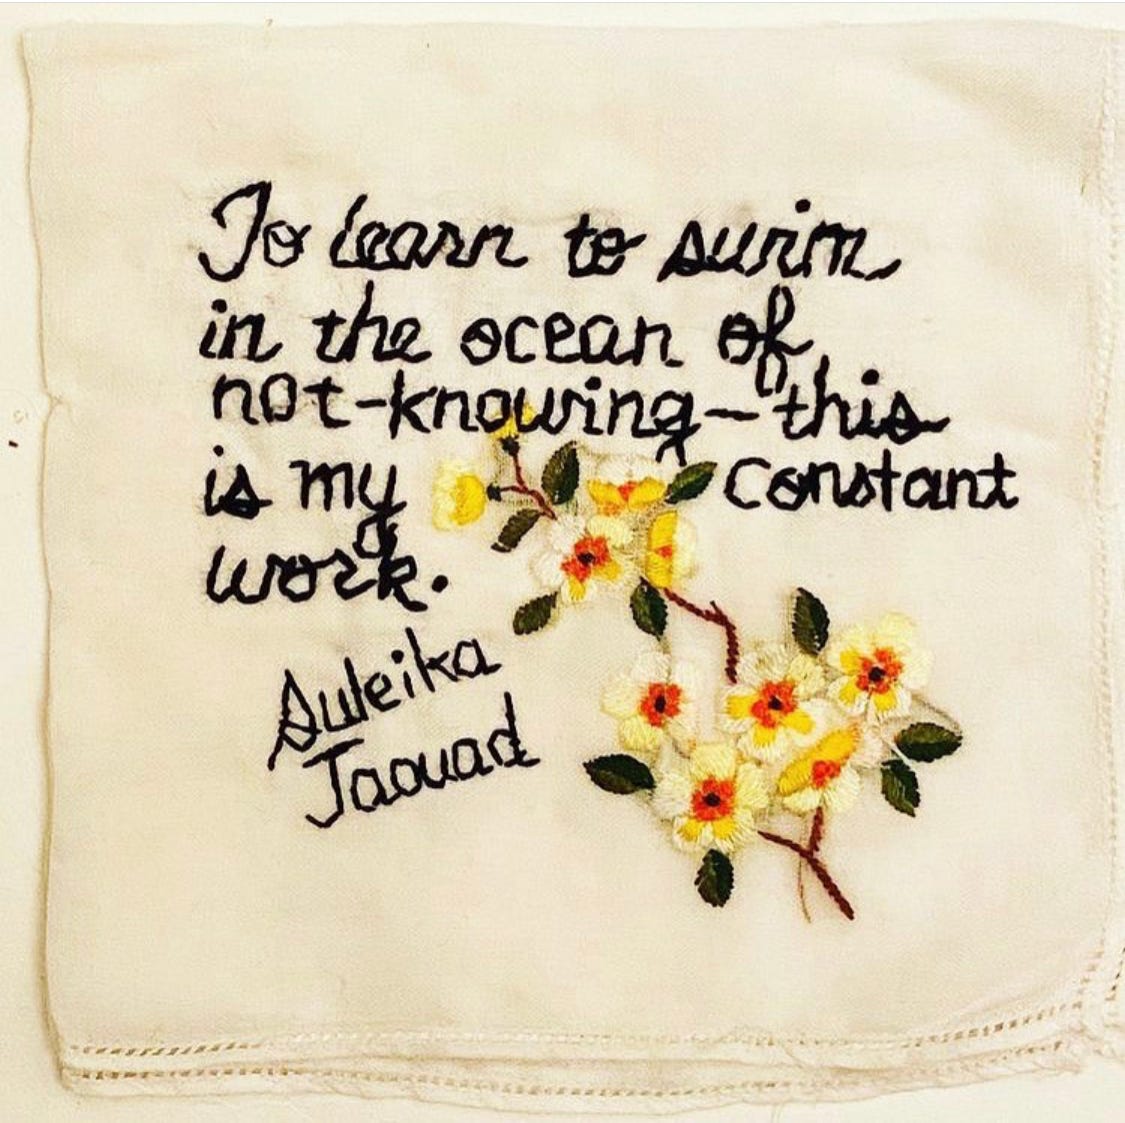 To learn to swim
in the ocean of
not-knowing—this
is my constant
work.
Suleika
Jaouad